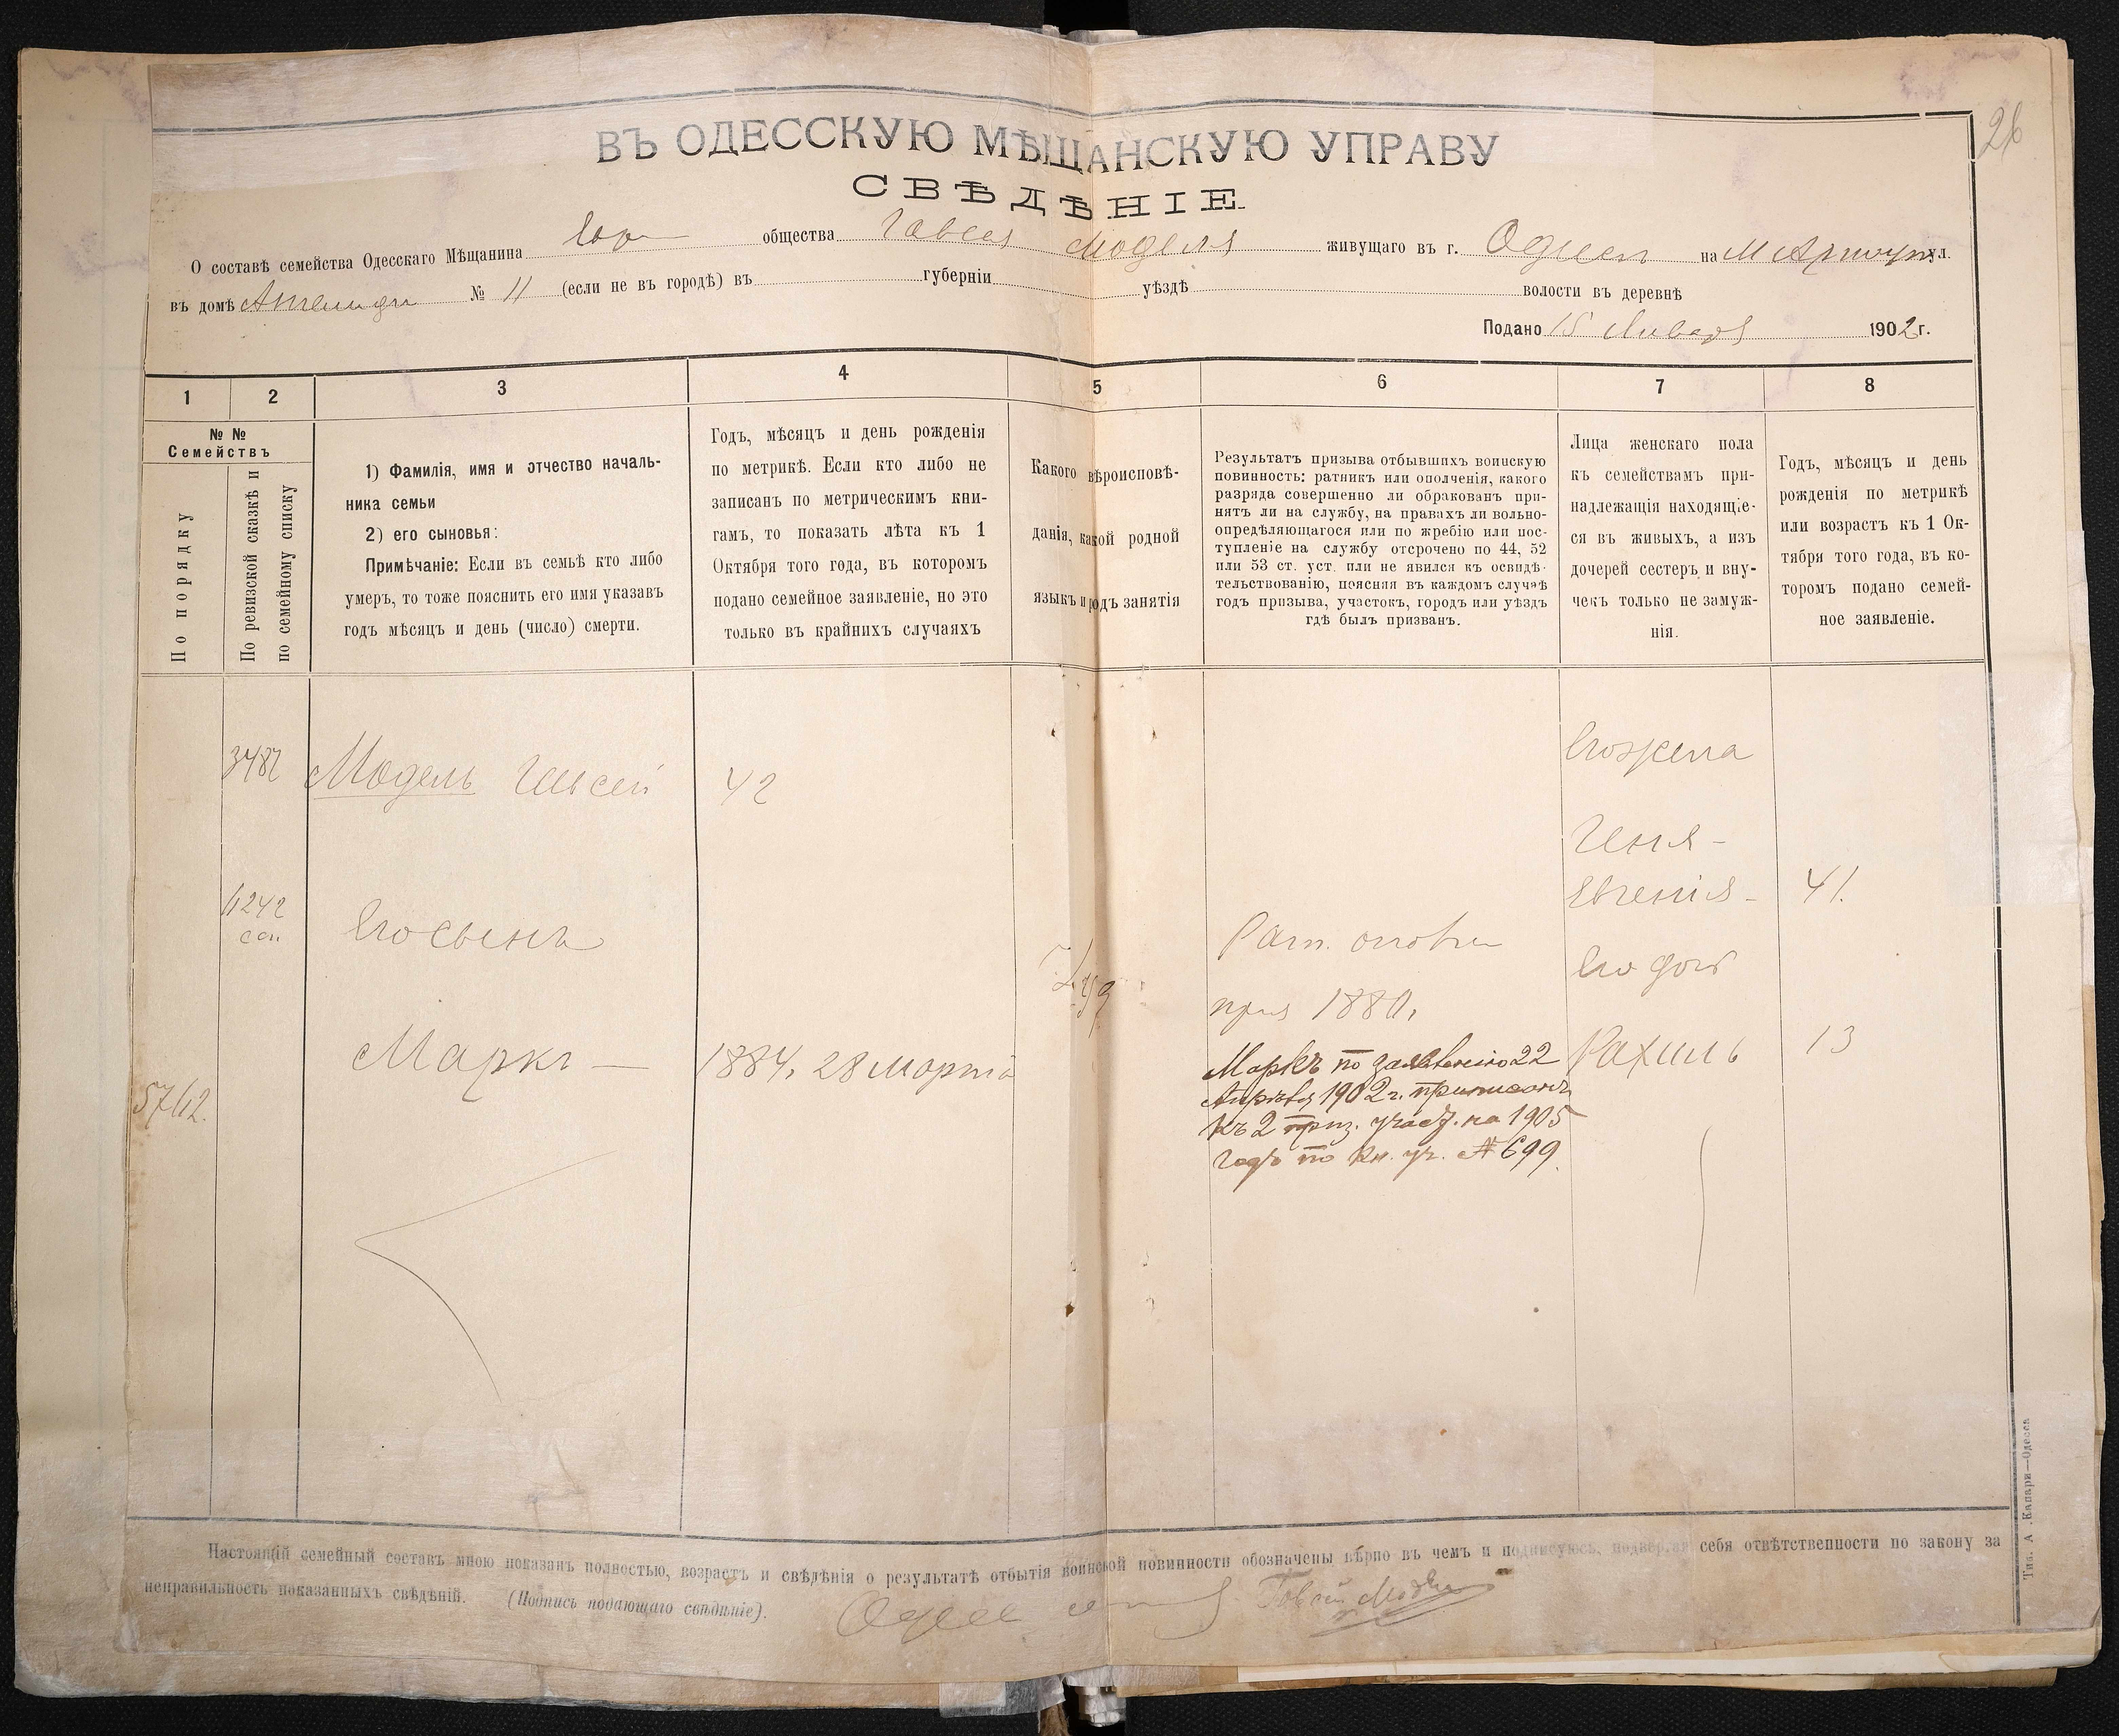 26
ВЪ ОДЕССКУЮ МѢЩАНСКУЮ УПРАВУ
СВѢДѢНІЕ
О составѣ семейства Одесскаго Мѣщанина Евр общества Говсея Моделя живущаго въ г. на ул.
въ домѣ № 11 (если не въ городѣ) въ губерніи уѣздѣ волости въ деревнѣ
Подано 15 Января 1902 г.
1 2 3 4 5 6 7 8
№ №
Семействъ
По порядку
По ревизской сказкѣ и
по семейному списку
1) Фамилія, имя и отчество началь-
ника семьи
2) его сыновья:
Примѣчаніе: Если въ семьѣ кто либо
умеръ, то тоже пояснить его имя указавъ
годъ мѣсяцъ и день (число) смерти.
Годъ, мѣсяцъ и день рожденія
по метрикѣ. Если кто либо не
записанъ по метрическимъ кни-
гамъ, то показать лѣта къ 1
Октября того года, въ которомъ
подано семейное заявленіе, но это
только въ крайнихъ случаяхъ
Какого вѣроисповѣ-
данія, какой родной
языкъ и родъ занятія
Результатъ призыва отбывшихъ воинскую
повинность: ратникъ или ополченія, какого
разряда совершенно ли обракованъ при-
нятъ ли на службу, на правахъ ли вольно-
опредѣляющагося или по жребію или пос-
тупленіе на службу отсрочено по 44, 52
или 53 ст. уст. или не явился къ освидѣ-
тельствованію, поясняя въ каждомъ случаѣ
годъ призыва, участокъ, городъ или уѣздъ
гдѣ былъ призванъ.
Лица женскаго пола
къ семействамъ при-
надлежащія находящіе-
ся въ живыхъ, а изъ
дочерей сестеръ и вну-
чекъ только не замуж-
нія.
Годъ, мѣсяцъ и день
рожденія по метрикѣ
или возрастъ къ 1 Ок-
тября того года, въ ко-
торомъ подано семей-
ное заявленіе.
Его жена
3487 Модель Говсей 42
Геня-
Евгенія- 41.
4242
Его сынъ
Рат.
Его доч
Іуд
приз 1880.
Маркъ — 1884, 28 Марта
Рахиль 13
Маркъ по заявленію 22
Апрѣля 1902 г. приписанъ
къ 2 приз. участ. на 1905
годъ по кн. уч. № 699.
57/12.
Настоящій семейный составъ мною показанъ полностью, возрастъ и свѣдѣнія о результатѣ отбытія воинской повинности обозначены вѣрно въ чемъ и подписуюсь, подвергая себя отвѣтственности по закону за
неправильность показанныхъ свѣдѣній. (Подпись подающаго свѣдѣніе). Говсей Модель
Тип. А. Капари—Одесса